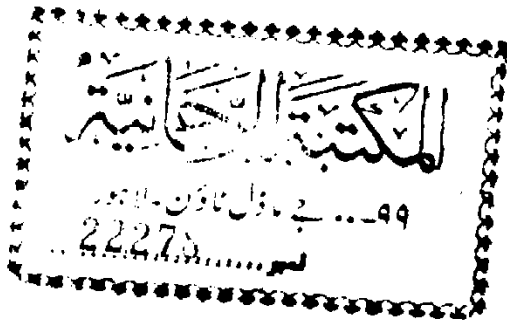 المكتبة الرحمانية
۹۹۔۔ جے ماڈل ٹاؤن۔ لاہور
نمبر